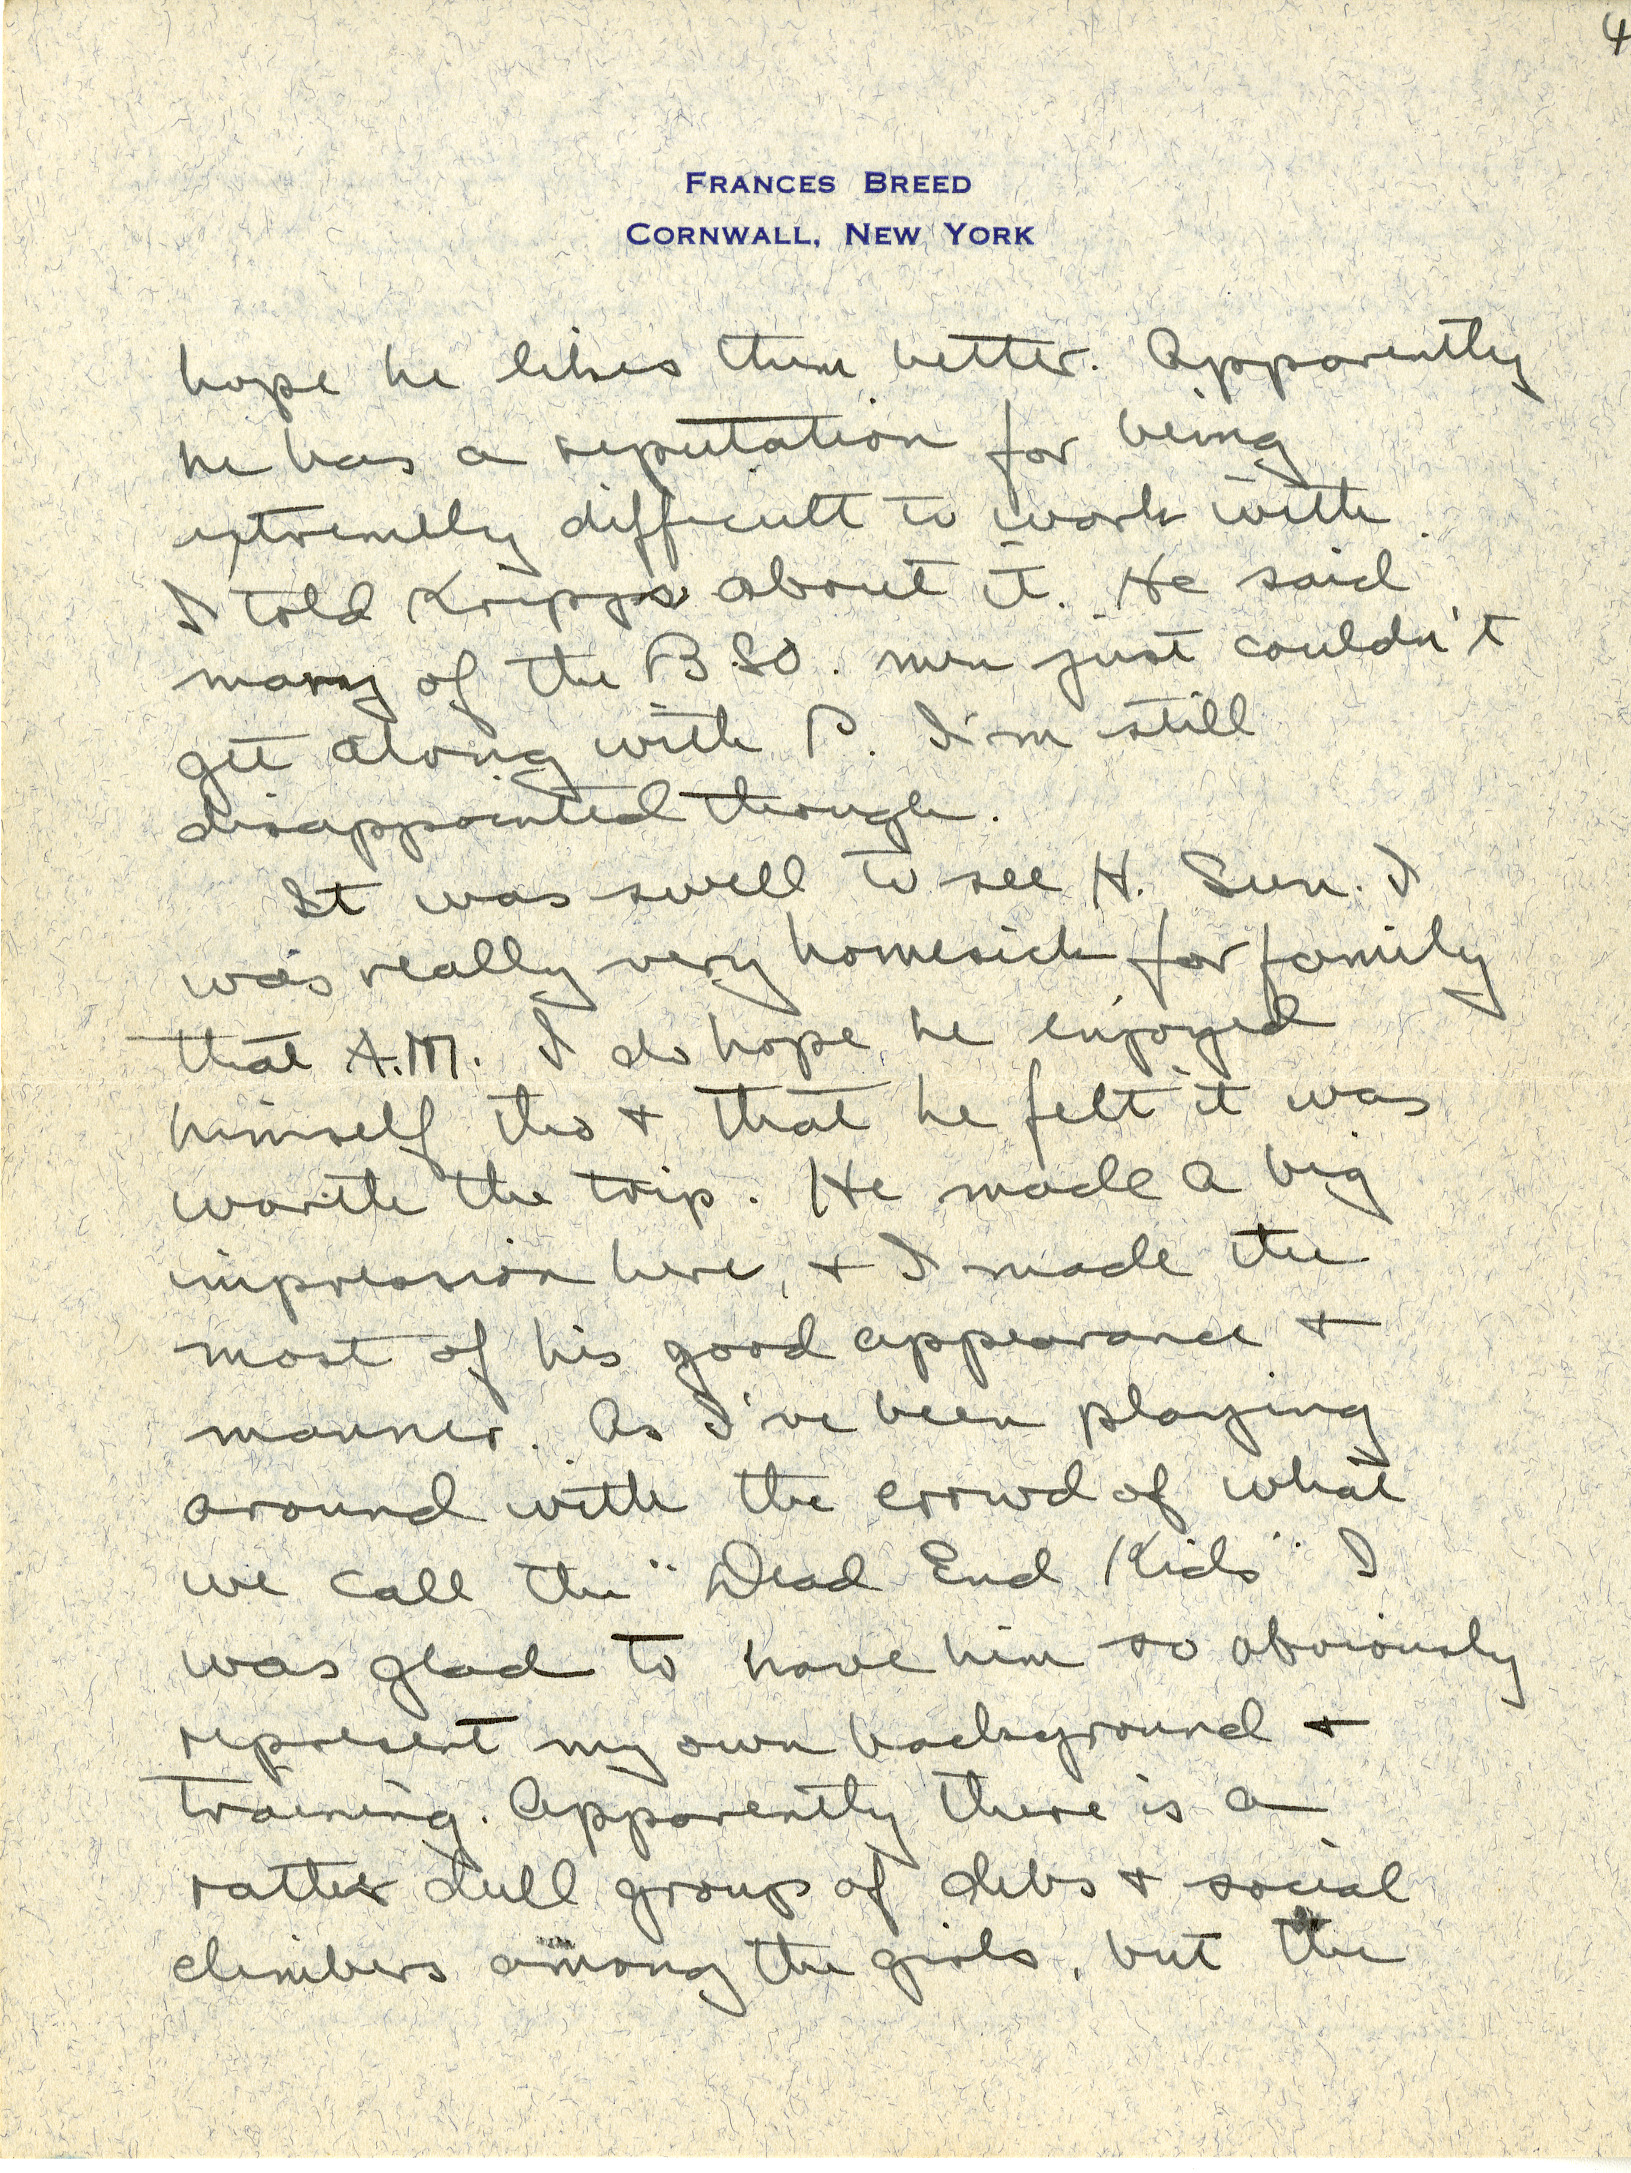 4
FRANCES BREED
CORNWALL, NEW YORK
hope he likes them better. Apparently
he has a reputation for being
extremely difficult to work with.
I told Kripps about it. He said
many of the B.S.O. men just couldn't
get along with P. I'm still
disappointed though.
It was swell to see H. Sun. I
was really very homesick for family
that A.M. I do hope he enjoyed
himself tho & that he felt it was
worth the trip. He made a big
impression here, & I made the
most of his good appearance &
manner. As I've been playing
around with the crowd of what
we call the "Dead End Kids" I
was glad to have him so obviously
represent my own background &
training. Apparently there is a
rather dull group of debs & social
climbers among the girls, but the